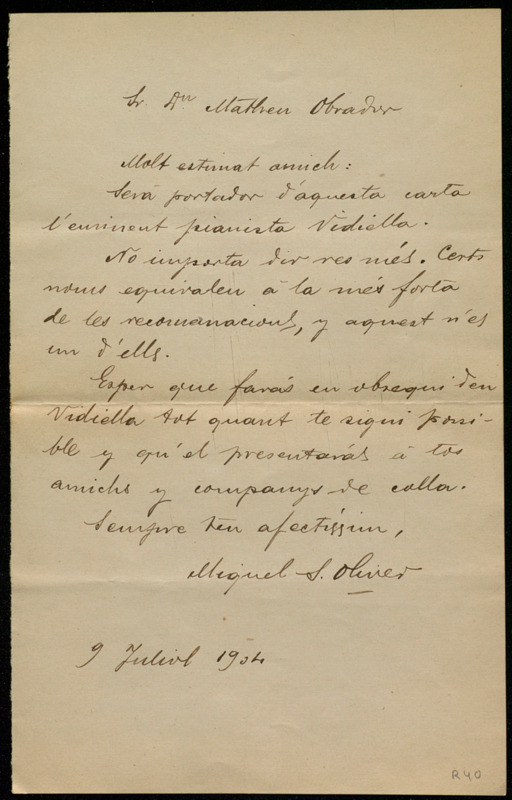 Sr. Dn. Matheu Obrador
Molt estimat amich:
Será portador d'aquesta carta
l'eminent pianista Vidiella.
No importa dir res més. Certs
noms equivalen á la més forta
de les recomanacions, y aquest n'es
un d'ells.
Esper que farás en obsequi d'en
Vidiella tot quant te sigui possi-
ble y qu'el presentarás á tos
amichs y companys de colla.
Sempre teu afectíssim,
Miquel S. Oliver
9 Juliol 1904
R40